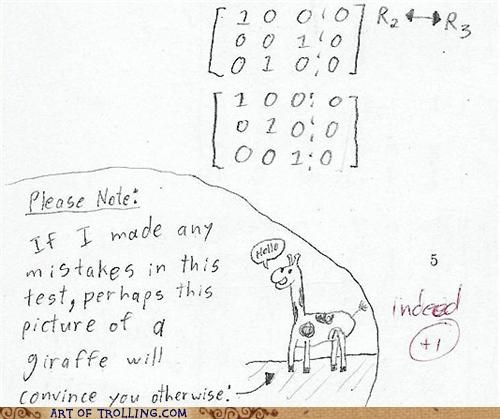 1 0 0 0 R2 ↔ R3
0 0 1 0
0 1 0 0
1 0 0 0
0 1 0 0
0 0 1 0
Please Note:
If I made any
mistakes in this
test, perhaps this
picture of a
giraffe will
convince you otherwise:
Hello
5
indeed
+1
ART OF TROLLING.COM